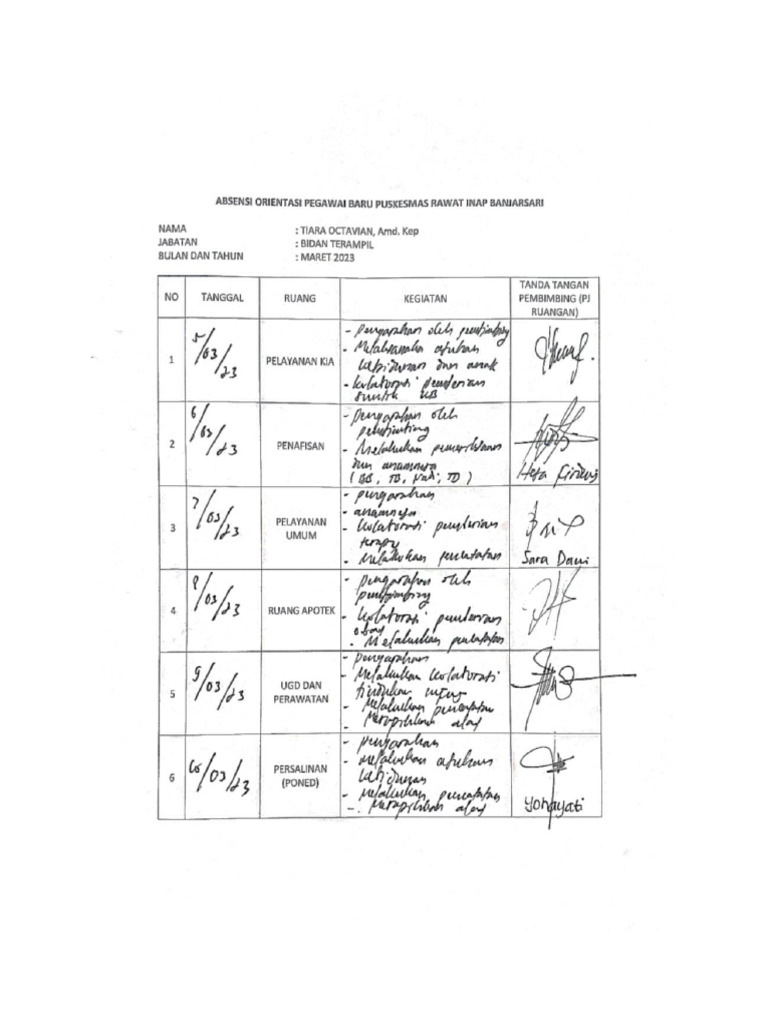 ABSENSI ORIENTASI PEGAWAI BARU PUSKESMAS RAWAT INAP BANJARSARI
NAMA : TIARA OCTAVIAN, Amd. Kep
JABATAN : BIDAN TERAMPIL
BULAN DAN TAHUN : MARET 2023
NO TANGGAL RUANG KEGIATAN TANDA TANGAN
PEMBIMBING (PJ
RUANGAN)
1 5/03/23 PELAYANAN KIA
- Pengarahan oleh pembimbing
- Melaksanakan asuhan
kebidanan dan anak
- Kolaborasi pemberian
suntik KB
2 6/03/23 PENAFISAN
- Pengarahan oleh
pembimbing
- Melakukan pemeriksaan
dan anamnesa
(BB, TB, Nadi, TD)
Hera
3 7/03/23 PELAYANAN
UMUM
- pengarahan
- anamnesa
- Kolaborasi pemberian
terapy
- Melakukan pencatatan
Sara Dani
4 8/03/23 RUANG APOTEK
- Pengarahan oleh
pembimbing
- Kolaborasi pemberian
obat
- Melakukan pencatatan
5 9/03/23 UGD DAN
PERAWATAN
- pengarahan
- Melakukan kolaborasi
tindakan
- Melakukan pencatatan
- Merapihkan alat
6 10/03/23 PERSALINAN
(PONED)
- pengarahan
- melakukan asuhan
kebidanan
- Melakukan pencatatan
- Merapihkan alat
Yohayati